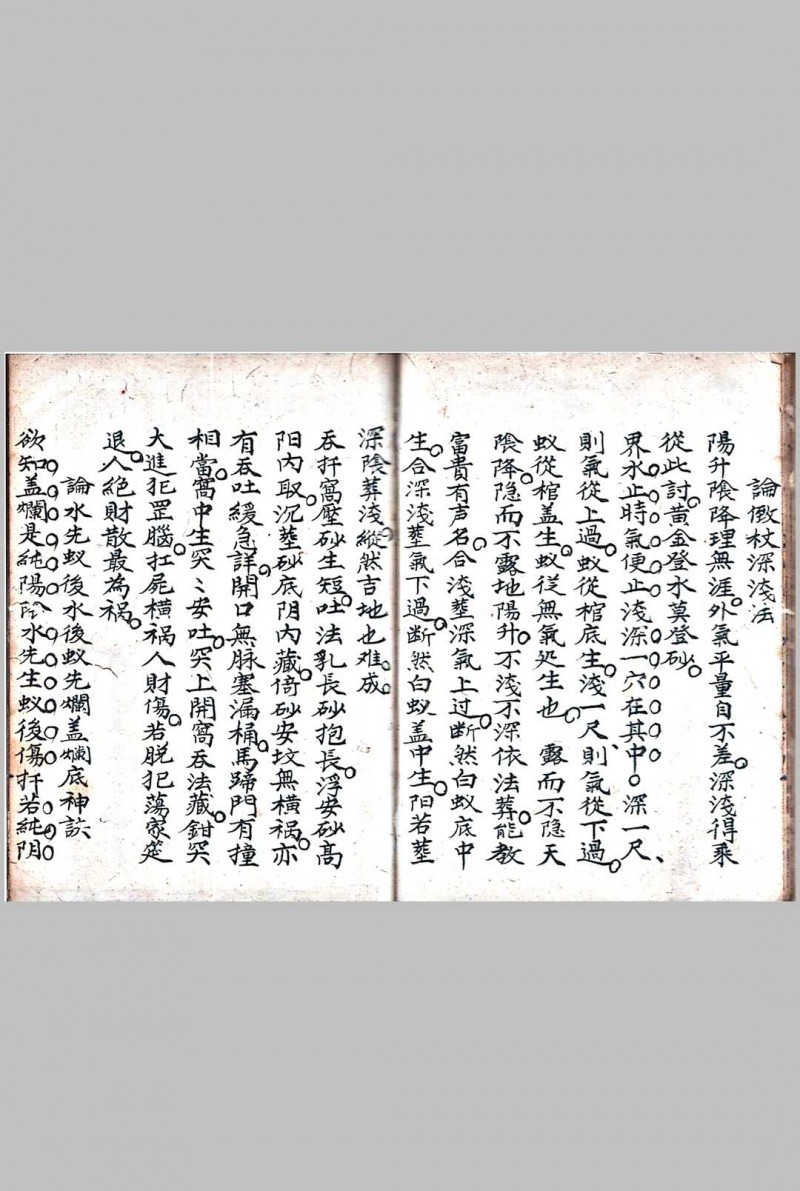 論倒杖深淺法
陽升陰降理無涯外氣平量自不差深淺得乘
從此討黃金登水莫登砂
界水止時氣便止淺深一穴在其中深一尺、
則氣從上過蚁從棺底生淺一尺則氣從下過
蚁從棺盖生蚁從無氣処生也露而不隐天
陰降隐而不露地陽升不淺不深依法葬能教
富貴有声名合淺塟深氣上过斷然白蚁底中
生合深淺塟氣下過斷然白蚁盖中生阳若塟
深陰葬淺縱然吉地也难成
吞扦窩壓砂生短吐法乳長砂抱長浮安砂髙
阳内取沉塟砂底阴内藏倚砂安坟無横祸亦
有吞吐緩急詳開口無脉塞漏桶馬蹄門有撞
相當窩中生突〻安吐突上開窩吞法藏鉗突
大進犯罡腦扛屍横祸人財傷若脱犯蕩家筵
退人絶財散最為祸
論水先蚁後水後蚁先爛盖爛底神訣
欲知盖爛是純陽水先生蚁後傷扦若純阴